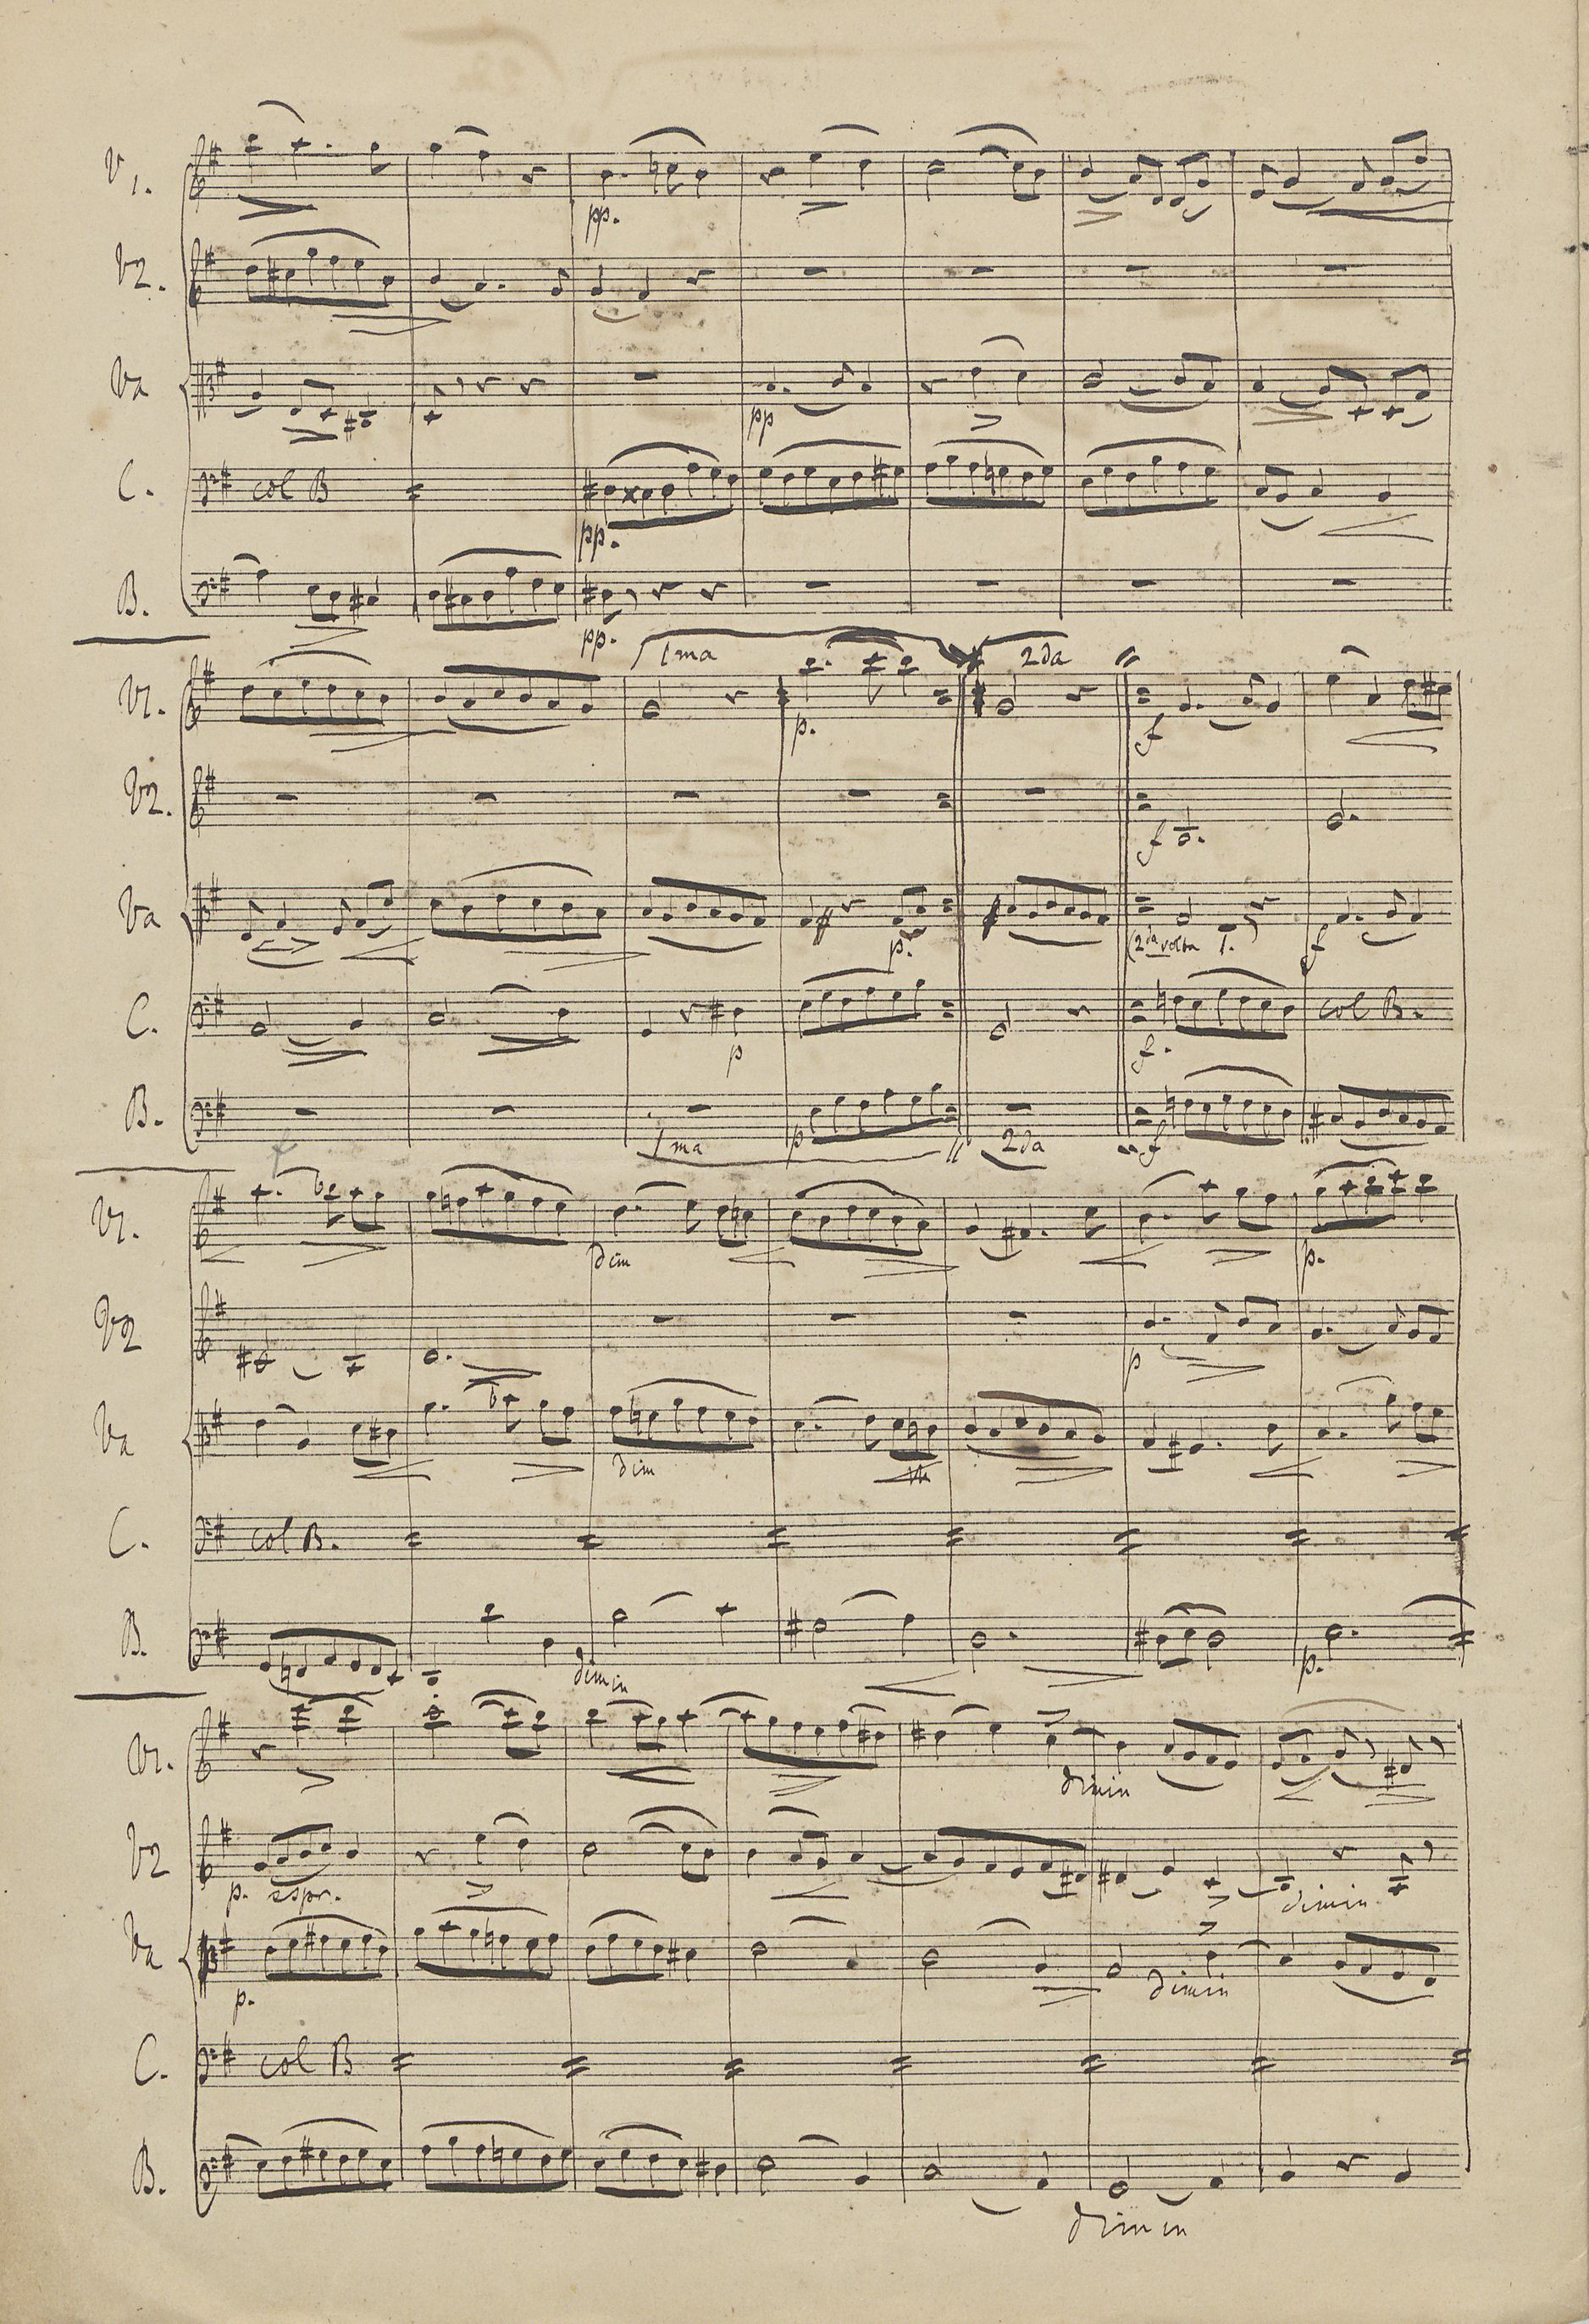 V1.
pp.
V2.
Va
pp
C. col B
pp.
B.
pp.
1ma 2da
V1.
p. f
V2.
f
Va
p. (2da volta 1.) f
C.
p f. col B.
B.
p f
1ma 2da
f
V1.
dim p.
V2
p
Va
dim
C. col B.
B.
dimin p.
V1.
dimin
V2
p. espr. dimin
Va
p. dimin
C. col B
B.
dimin